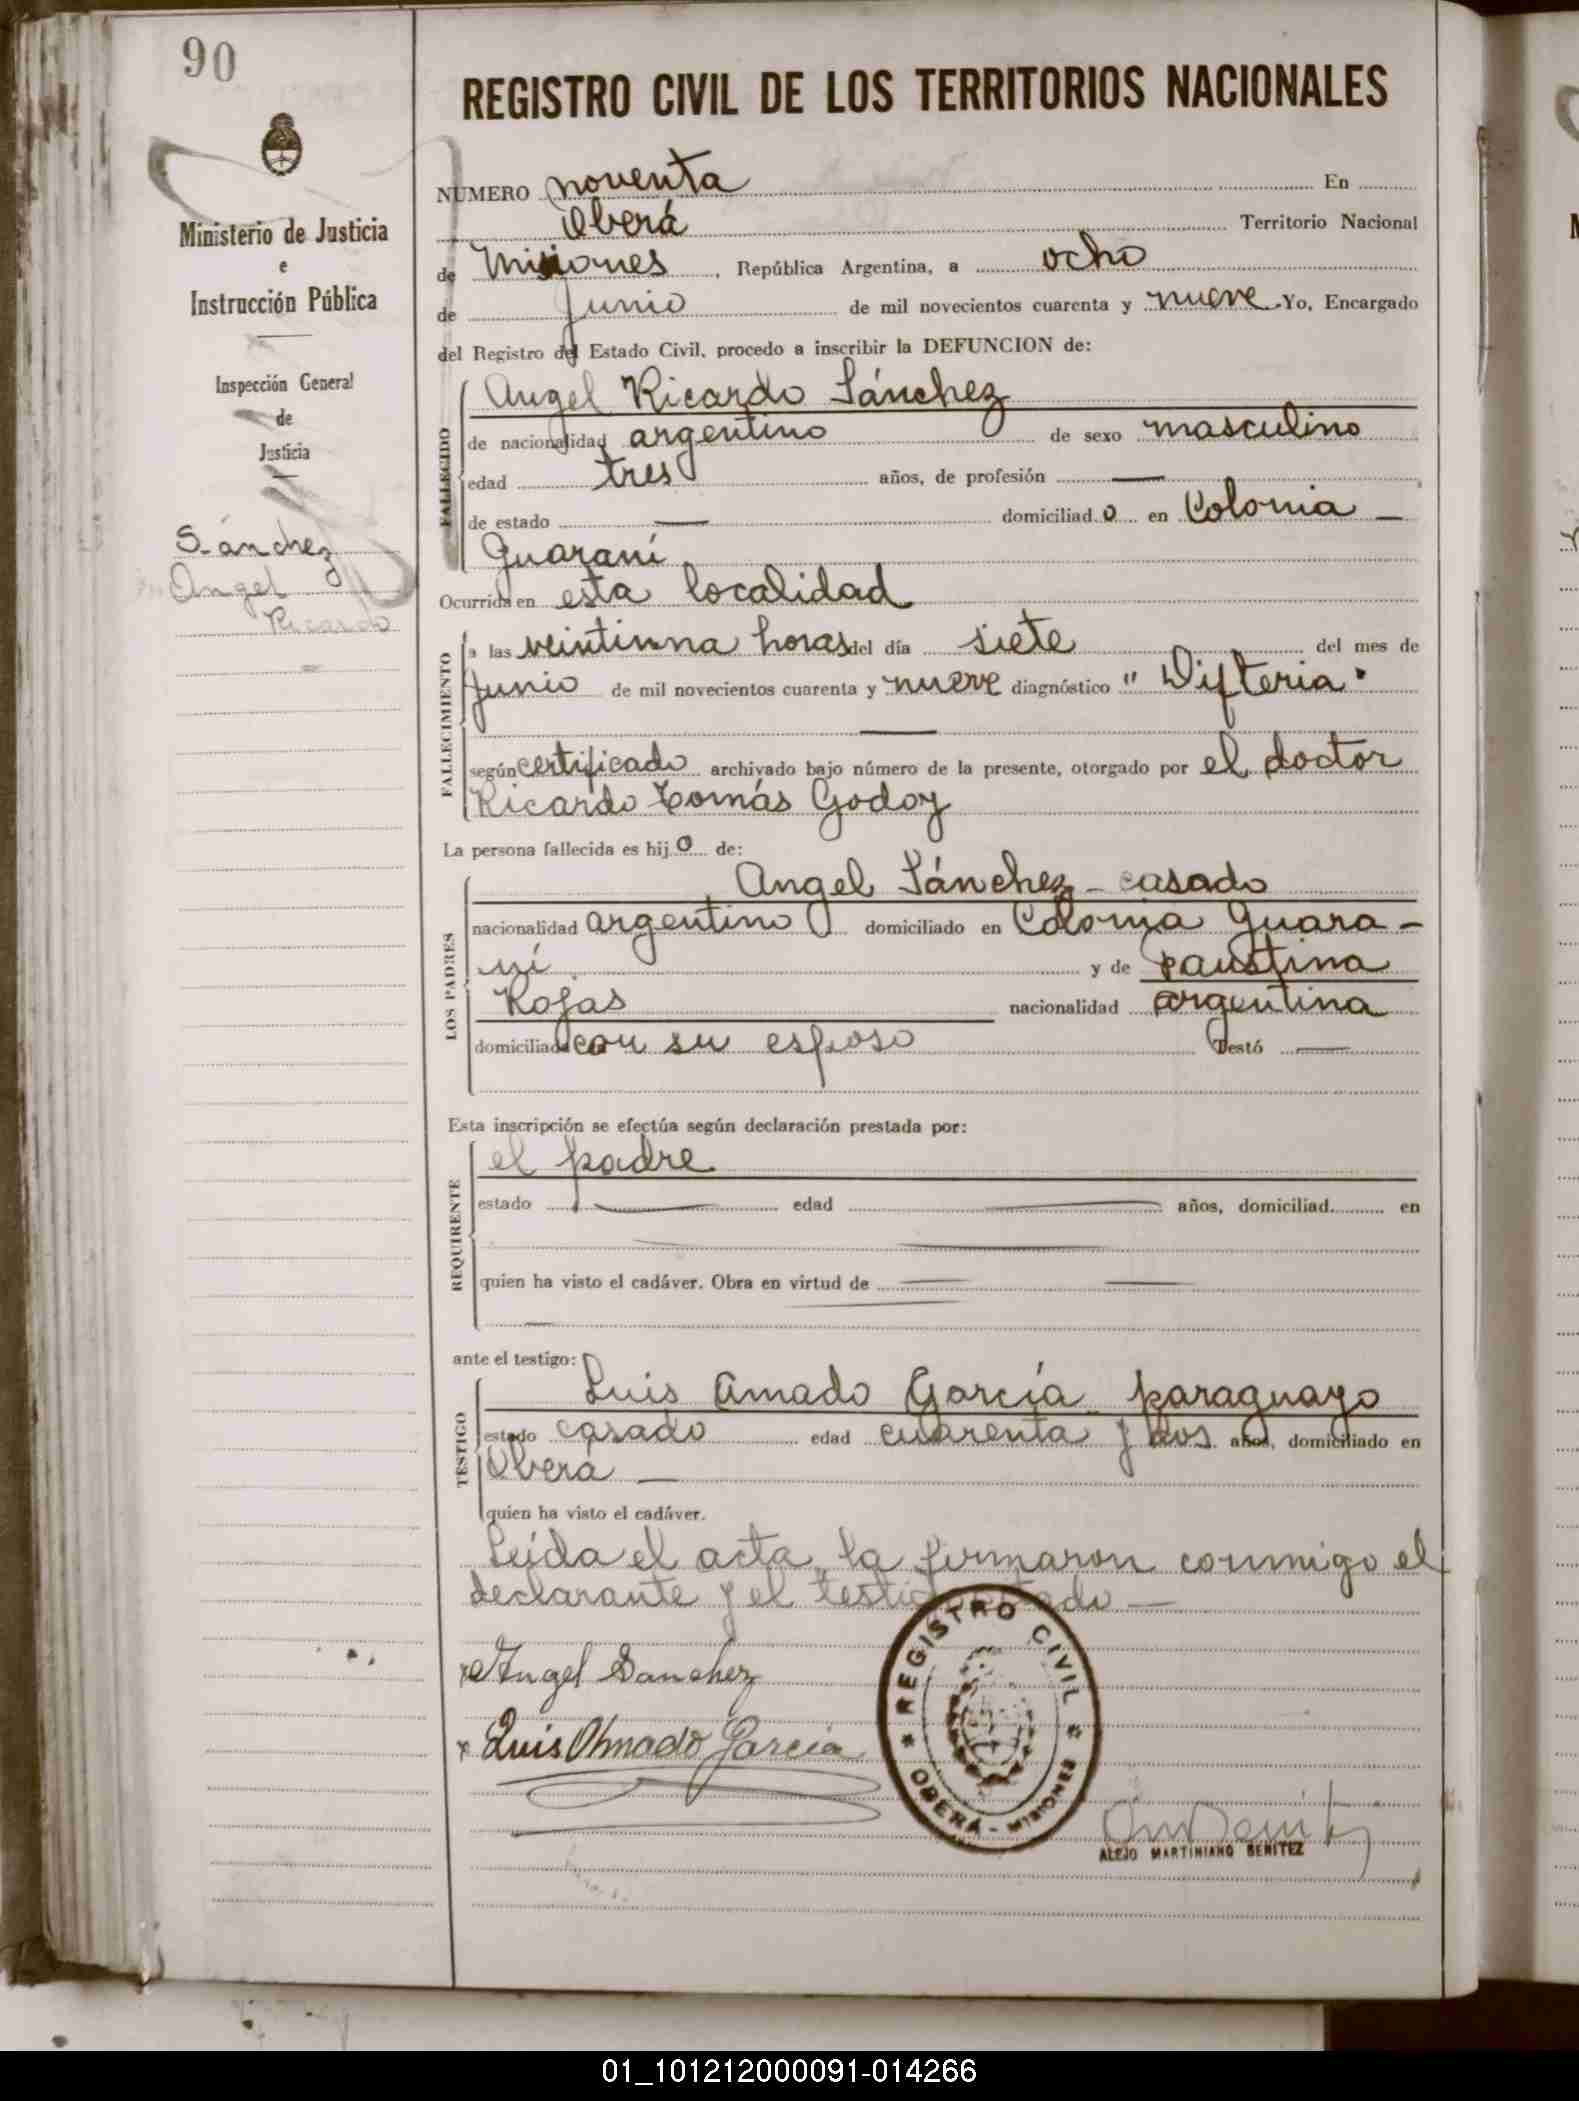 90
REGISTRO CIVIL DE LOS TERRITORIOS NACIONALES
Ministerio de Justicia
e
Instrucción Pública
Inspección General
de
Justicia
S-ánchez
Angel
Ricardo
NUMERO noventa En
Oberá Territorio Nacional
de Misiones, República Argentina, a ocho
de Junio de mil novecientos cuarenta y nueve Yo, Encargado
del Registro del Estado Civil, procedo a inscribir la DEFUNCION de:
FALLECIDO
Angel Ricardo Sánchez
de nacionalidad argentino de sexo masculino
edad tres años, de profesión —
de estado — domiciliado en Colonia —
Guaraní
Ocurrida en esta localidad
FALLECIMIENTO
a las veintiuna horas del día siete del mes de
Junio de mil novecientos cuarenta y nueve diagnóstico "Difteria"
—
según certificado archivado bajo número de la presente, otorgado por el doctor
Ricardo Tomás Godoy
La persona fallecida es hijo de:
LOS PADRES
Angel Sánchez - casado
nacionalidad argentino domiciliado en Colonia Guara-
ní y de Faustina
Rojas nacionalidad argentina
domiciliada con su esposo Testó —
Esta inscripción se efectúa según declaración prestada por:
REQUIRENTE
el padre
estado — edad — años, domiciliad en
quien ha visto el cadáver. Obra en virtud de — —
—
ante el testigo:
TESTIGO
Luis Amado García - paraguayo
estado casado edad cuarenta y dos años, domiciliado en
Oberá —
quien ha visto el cadáver.
Leída el acta, la firmaron conmigo el
declarante y el testigo —
x Angel Sanchez
x Luis Amado Garcia
* REGISTRO CIVIL *
OBERÁ - MISIONES
ALEJO MARTINIANO BENITEZ
01_101212000091-014266